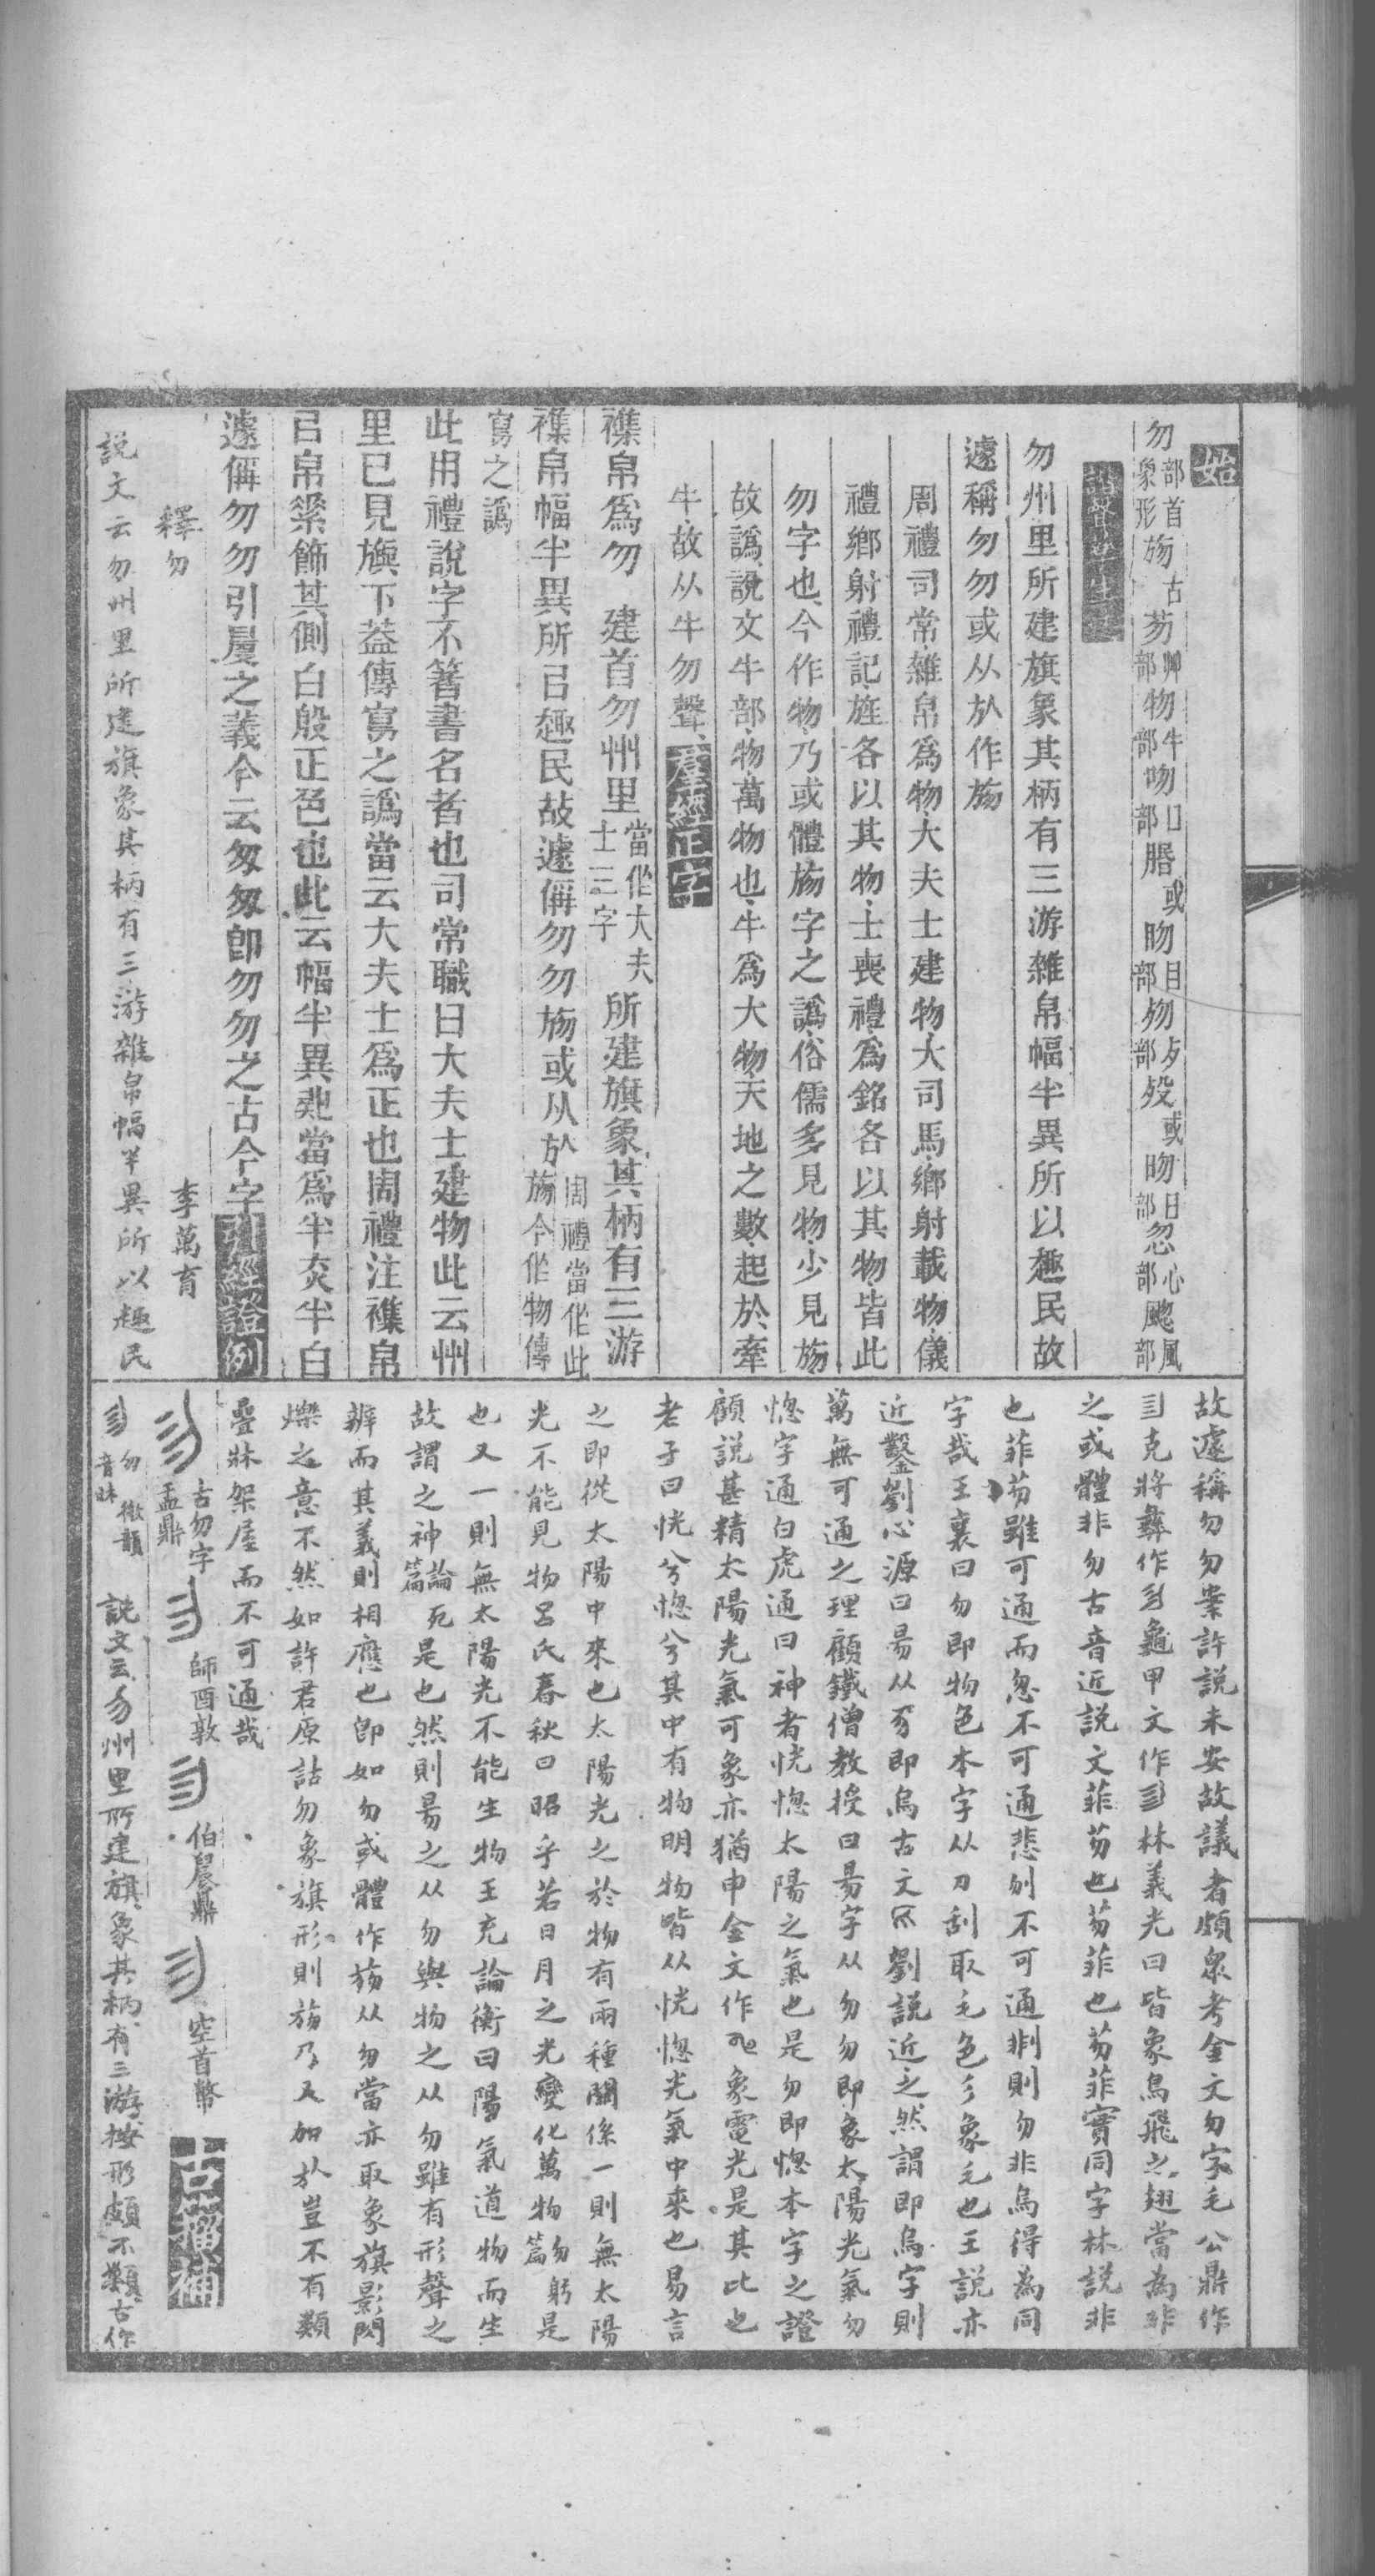 始
勿部首象形㫚古芴艸部物牛部吻口部脗或眒目部歾歹部歿或昒日部忽心部颮風部
勿州里所建旗象其柄有三游雜帛幅半異所以趣民故
遽稱勿勿或从㫃作㫚
周禮司常雜帛爲物大夫士建物大司馬鄉射載物儀
禮鄉射禮記旌各以其物士喪禮爲銘各以其物皆此
勿字也今作物乃或體㫚字之譌俗儒多見物少見㫚
故譌說文牛部物萬物也牛爲大物天地之數起於牽
牛故从牛勿聲羣經正字
襍帛爲勿 建首勿州里當作大夫士三字所建旗象其柄有三游
襍帛幅半異所㠯趣民故遽偁勿勿㫚或从㫃周禮當作此㫚今作物傳
寫之譌
此用禮說字不箸書名者也司常職曰大夫士建物此云州
里已見旟下葢傳寫之譌當云大夫士爲正也周禮注襍帛
㠯帛𣞤飾其側白殷正色也此云幅半異䎡當爲半赤半白
遽偁勿勿引𢍏之義今云匆匆卽勿勿之古今字引經證例
釋勿 李萬育
說文云勿州里所建旗象其柄有三游雜帛幅半異所以趣民
故遽稱勿勿案許説未安故議者頗衆考金文勿字毛公鼎作
克將彝作龜甲文作林義光曰皆象鳥飛之翅當為非
之或體非勿古音近説文菲芴也芴菲也芴菲實同字林説非
也菲芴雖可通而忽不可通悲刎不可通剕則勿非烏得為同
字哉王襄曰勿即物色本字从刀刮取毛色彡象毛也王說亦
近鑿劉心源曰昜从𠃓即烏古文劉説近之然謂即烏字則
萬無可通之理顧鐵僧教授曰昜字从勿勿即象太陽光氣勿
惚字通白虎通曰神者恍惚太陽之氣也是勿即惚本字之證
顧説甚精太陽光氣可象亦猶申金文作象電光是其比也
老子曰恍兮惚兮其中有物明物皆从恍惚光氣中來也易言
之即從太陽中來也太陽光之於物有兩種關係一則無太陽
光不能見物呂氏春秋曰昭乎若日月之光變化萬物勿躬篇是
也又一則無太陽光不能生物王充論衡曰陽氣道物而生
故謂之神論死篇是也然則昜之从勿與物之从勿雖有形聲之
辨而其義則相應也卽如勿或體作㫚从勿當亦取象旗影閃
爍之意不然如許君原詁勿象旗形則㫚乃又加㫃豈不有類
疊牀架屋而不可通哉
古勿字盂鼎 師酉敦 伯㫳鼎 空首幣 古籀補
勿音昧徵韻 說文云勿州里所建旗象其柄有三游按形頗不類古作